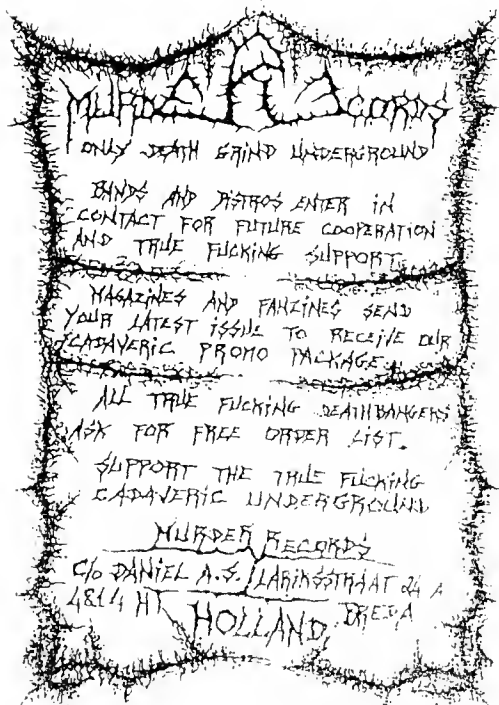 MURDER RECORDS
ONLY DEATH GRIND UNDERGROUND
BANDS AND DISTROS ENTER IN
CONTACT FOR FUTURE COOPERATION
AND TRUE FUCKING SUPPORT.
MAGAZINES AND FANZINES SEND
YOUR LATEST ISSUE TO RECEIVE OUR
CADAVERIC PROMO PACKAGE.
ALL TRUE FUCKING DEATHBANGERS
ASK FOR FREE ORDER LIST.
SUPPORT THE TRUE FUCKING
CADAVERIC UNDERGROUND
MURDER RECORDS
C/o DANIEL A.S. LARIKSSTRAAT 24 A
4814 HT BREDA
HOLLAND